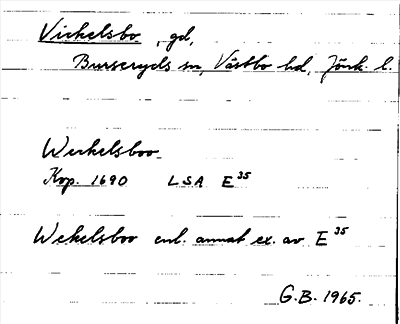 Virkelsbo, gd,
Burseryds sn, Västbo hd, Jönk. l.
Werkelsboo
Kop. 1690 LSA E 35
Wekelsboo enl. annat ex. av E 35
G.B. 1965.